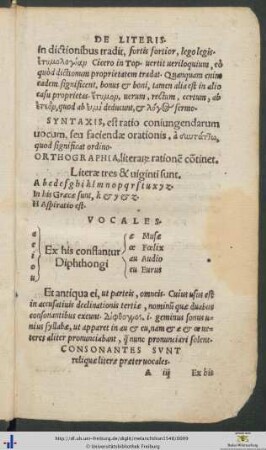 DE LITERIS.
in dictionibus tradit, fortis fortior, lego legit.
ἐτυμολογίαν Cicero in Top. uertit ueriloquium, eò
quòd dictionum proprietatem tradat. Quanquam enim
eadem significent, bonus & boni, tamen alia est in alio
casu proprietas. ἔτυμον, uerum, rectum, certum, ab
quod ab deducunt, & λόγος sermo.
SYNTAXIS, est ratio coniungendarum
uocum, seu faciendæ orationis, à συντάττω,
quod significat ordino.
ORTHOGRAPHIA, literarū rationē cōtinet.
Literæ tres & uiginti sunt.
A b c d e f g h i k l m n o p q r s t u x y z.
In his Græcæ sunt, k & y & z.
H Aspiratio est.
VOCALES.
a
e
i
o
u
Ex his constantur
Diphthongi
æ Musæ
œ Fœlix
au Audio
eu Eurus
Et antiqua ei, ut parteis, omneis. Cuius usus est
in accusatiuis declinationis tertiæ, nominū quæ duabus
consonantibus exeunt. Δίφθογγος. i. geminus sonus u-
nius syllabæ, ut apparet in au & eu, nam & æ & œ ue-
teres aliter pronunciabant, q̃ nunc pronunciari solent.
CONSONANTES SVNT
reliquæ literæ præter uocales.
A iij Ex his
http://dl.ub.uni-freiburg.de/diglit/melanchthon1540/0009
© Universitätsbibliothek Freiburg